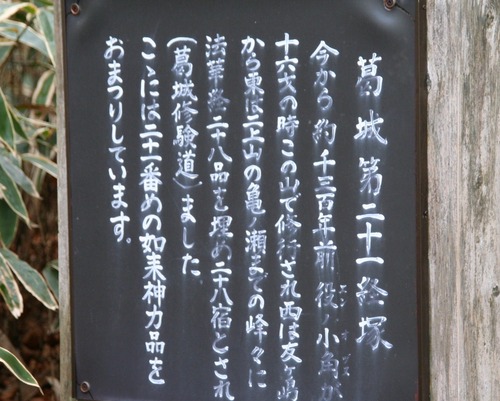 葛城第二十一経塚
今から約千三百年前役ノ小角が
十六才の時この山で修行され西は友ヶ島
から東は二上山の亀ノ瀬までの峰々に
法華経二十八品を埋め二十八宿とされ
(葛城修験道)ました
こゝには二十一番めの如来神力品を
おまつりしています。